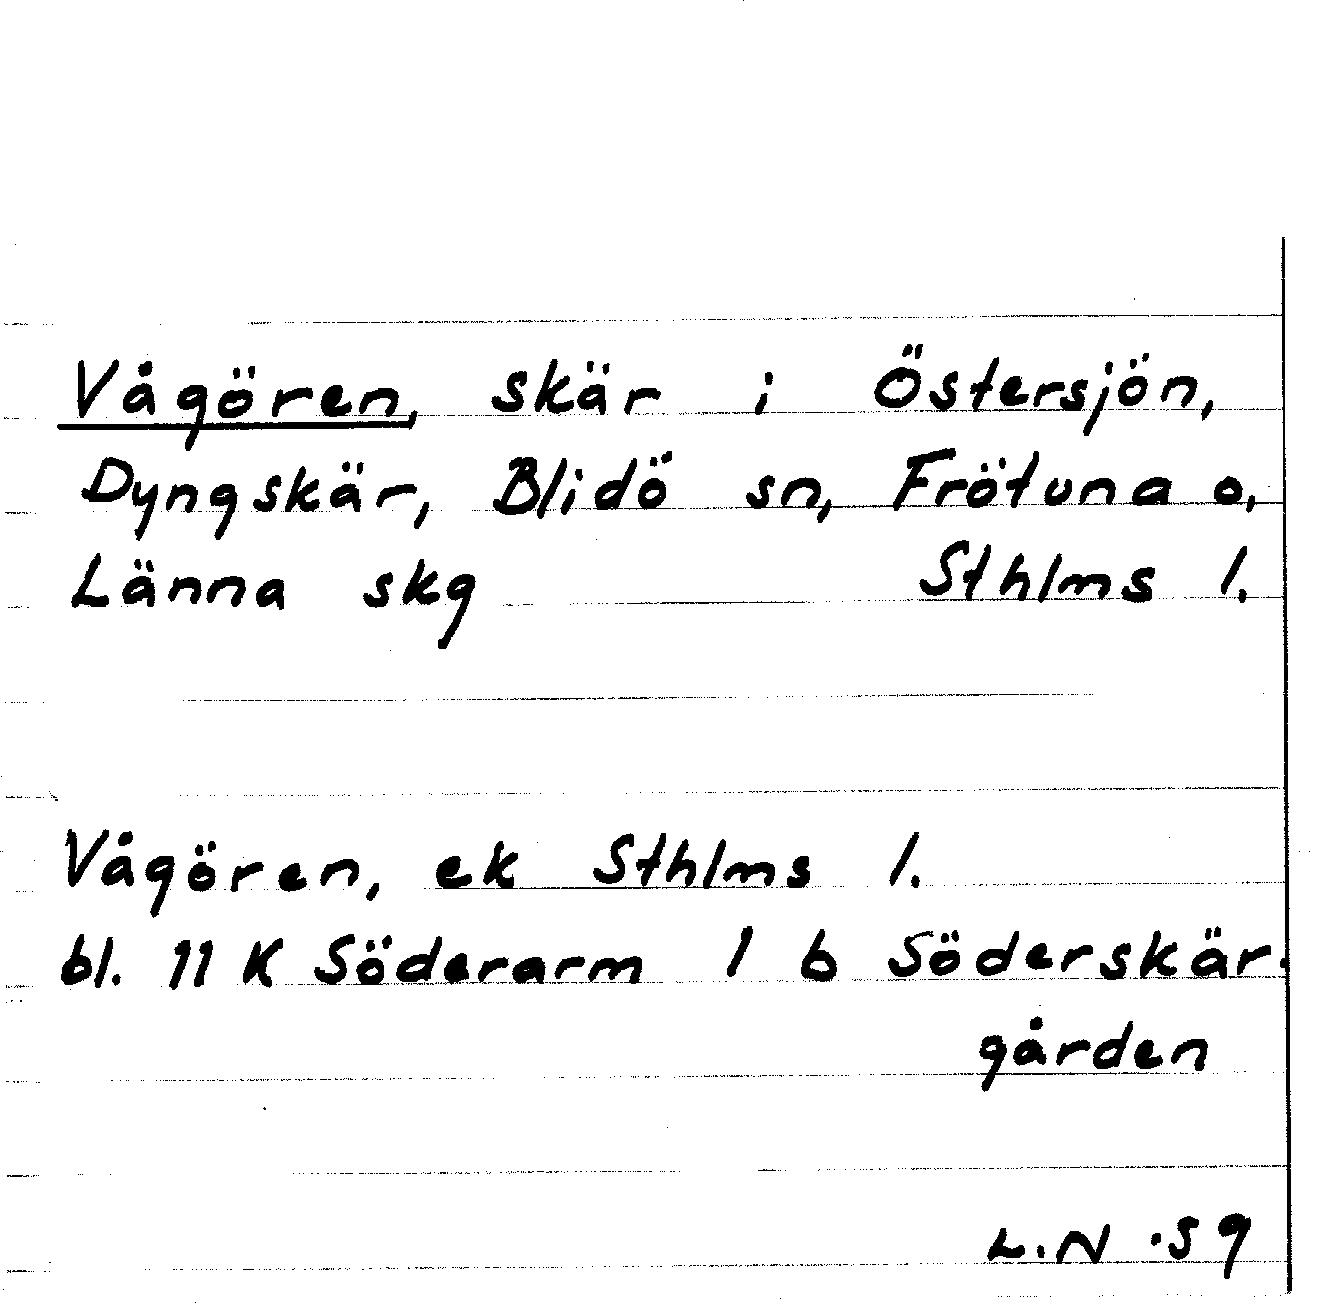 Vågören, skär i Östersjön,
Dyngskär, Blidö sn, Frötuna o,
Länna skg Sthlms l.
Vågören, ek Sthlms l.
bl. 11 K Söderarm 1 b Söderskär-
gården
L.N .59